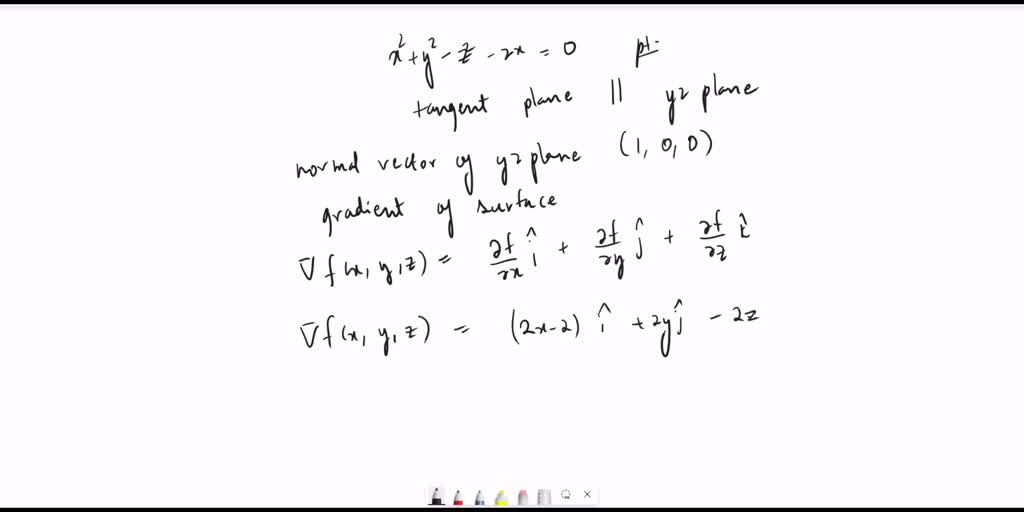 x² + y² - z - 2x = 0 pt.
tangent plane || yz plane
normal vector of yz plane (1, 0, 0)
gradient of surface
∇f(x, y, z) = ∂f/∂x î + ∂f/∂y ĵ + ∂f/∂z k̂
∇f(x, y, z) = (2x-2) î + 2yĵ - 2z